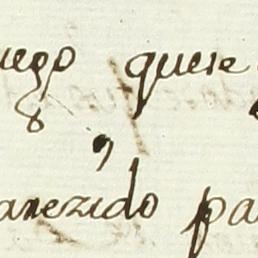 uego quese
arezido pa